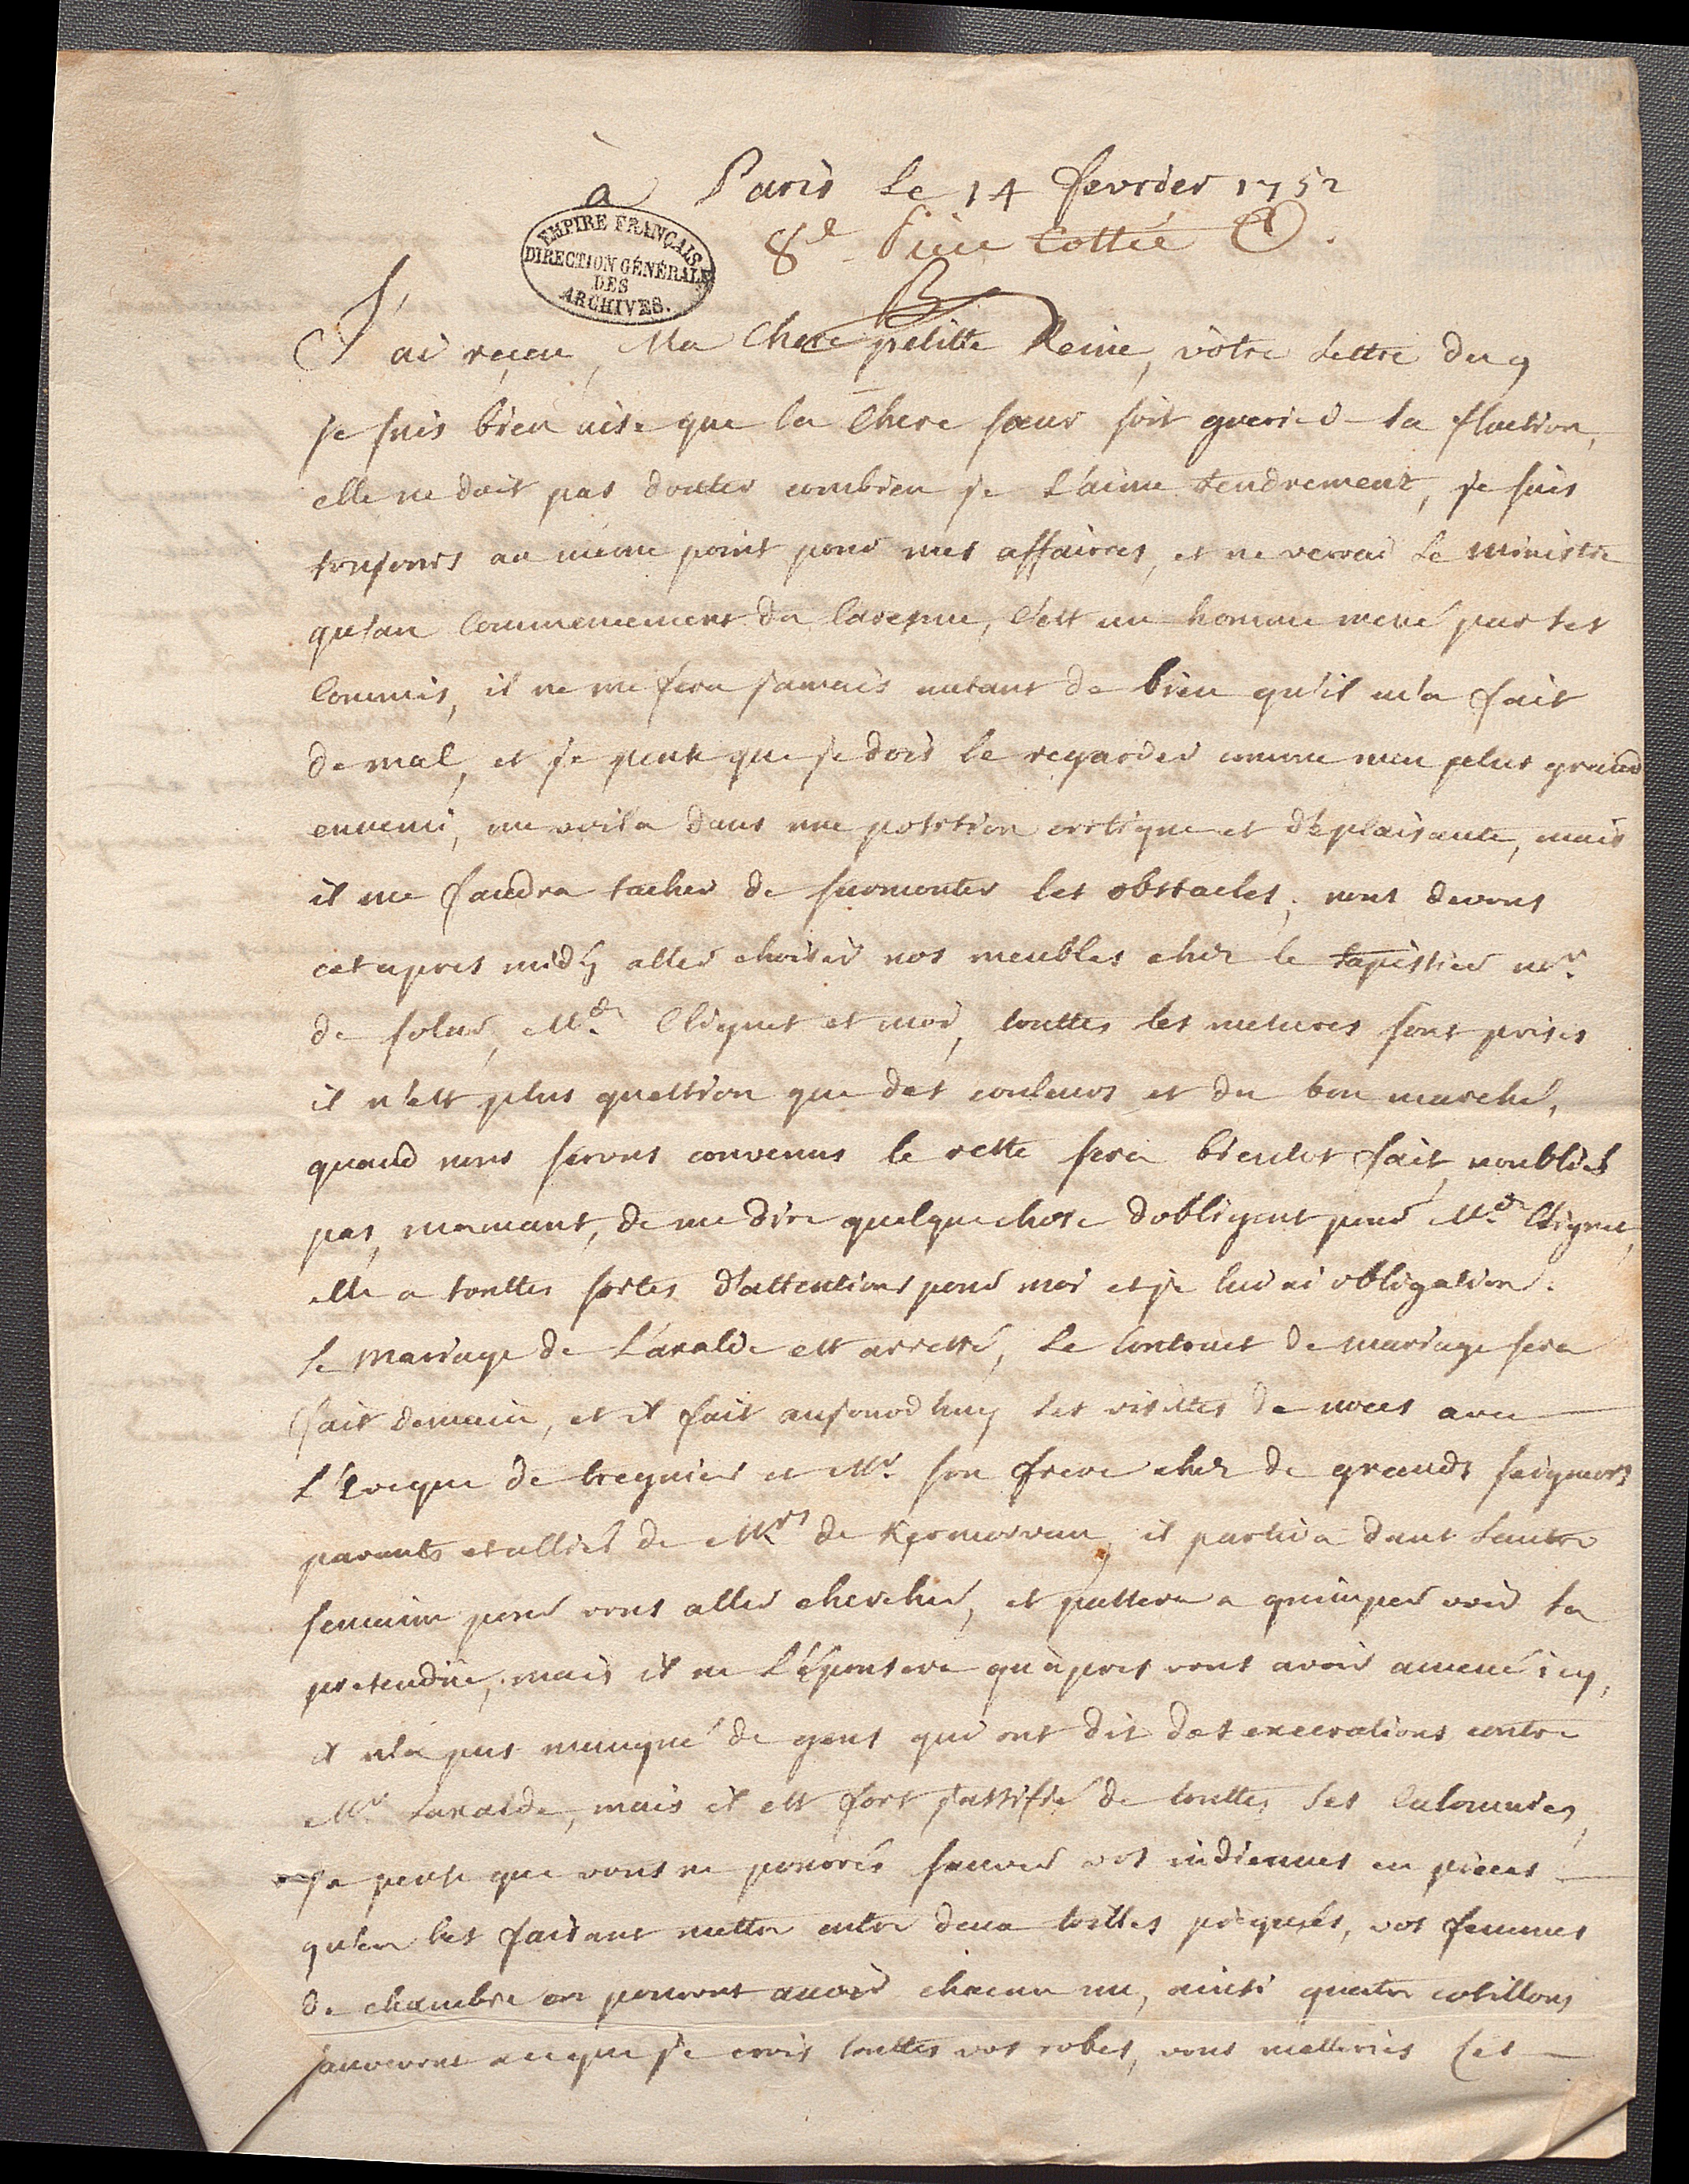 à Paris le 14 fevrier 1752
8e Piece Cottée
EMPIRE FRANÇAIS
DIRECTION GÉNÉRALE
DES
ARCHIVES.
J'ai reçeu, Ma Chere petitte Reine, vôtre Lettre du 9
je suis bien aise que la Chere sœur soit guerie d sa fluction,
elle ne doit pas douter combien je L'aime tendrement, je suis
toujours au même point pour mes affaires, et ne verrai Le ministre
qu'au Commencement du Caresme, C'est un homme mené par ses
Commis, il ne me fera jamais autant de bien qu'il m'a fait
de mal, et je pense que je dois le regarder comme mon plus grand
ennemi, me voila dans une position critique et déplaisante, mais
il me faudra tacher de surmonter les obstacles, nous devons
cet apres midy aller choisir nos meubles chez le tapissier mr.
de solar, Md. Cliquet et moi, touttes les mesures sont prises
il n'est plus question que des couleurs et du bon marché,
quand nous serons convenus le reste sera bientot fait, noubliés
pas, mamant, de me dire quelque chose d'obligent pour Md. Cliquet,
elle a touttes sortes d'attentions pour moi et je lui ai obligation.
Le Mariage de L'aralde est arresté, Le Contract de mariage sera
fait demain, et il fait aujourd huy ses visittes de noces avec
L'Eveque de treguier et Mr. son frere chez de grands seigneurs
parents et alliés de Mrs de Kermorvan, il partira dans Lautre
semaine pour vous aller chercher, et passera a quimper voir sa
pretendüe, mais il ne L'épousera qu'apres vous avoir amené icy,
il n'a pas manqué de gens qui ont dit des execrations contre
Mr. Laralde, mais il est fort justifié de touttes ses Calomnies,
je pense que vous ne pourrés sauver vos indiennes en pieces
qu'en les faisant mettre entre deux toilles piquées, vos femmes
de chambre en peuvent avoir chacune un, ainsi quatre cotillons
sauveront a ce que je crois touttes vos robes, vous metteriés ces